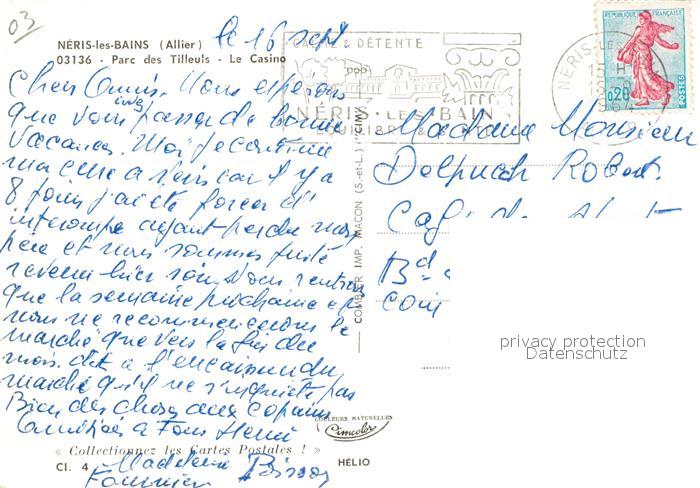 03
NÉRIS-les-BAINS (Allier)
03136 - Parc des Tilleuls - Le Casino
le 16 sept
CALME & DÉTENTE
NÉRIS-LES-BAINS
ÉQUILIBRE &
NÉRIS-LES-
RÉPUBLIQUE FRANÇAISE
0,20
POSTES
Chers Amis. Nous espérons
que vous passez de bonne
vacances. Moi je continue
ma cure à Néris car il y a
8 jours j'ai été forcée d'
interrompre ayant perdu mon
père et nous sommes
revenu hier soir. Nous rentrons
que la semaine prochaine et
nous ne recommencerons le
marché que vers la fin du
mois. dit à l'encaisseur du
marché qu'il ne s'inquiète pas
Bien des choses aux copains
Amitiés à Tous Henri
Madeleine Brisson
Fournier
« Collectionnez les Cartes Postales ! »
Cl. 4
HÉLIO
COULEURS NATURELLES
Cimcolor
COMBIER IMP. MACON (S.-et-L.) "CIM"
Madame Monsieur
Delpuech Robert
Café
Bd
Cour
privacy protection
Datenschutz